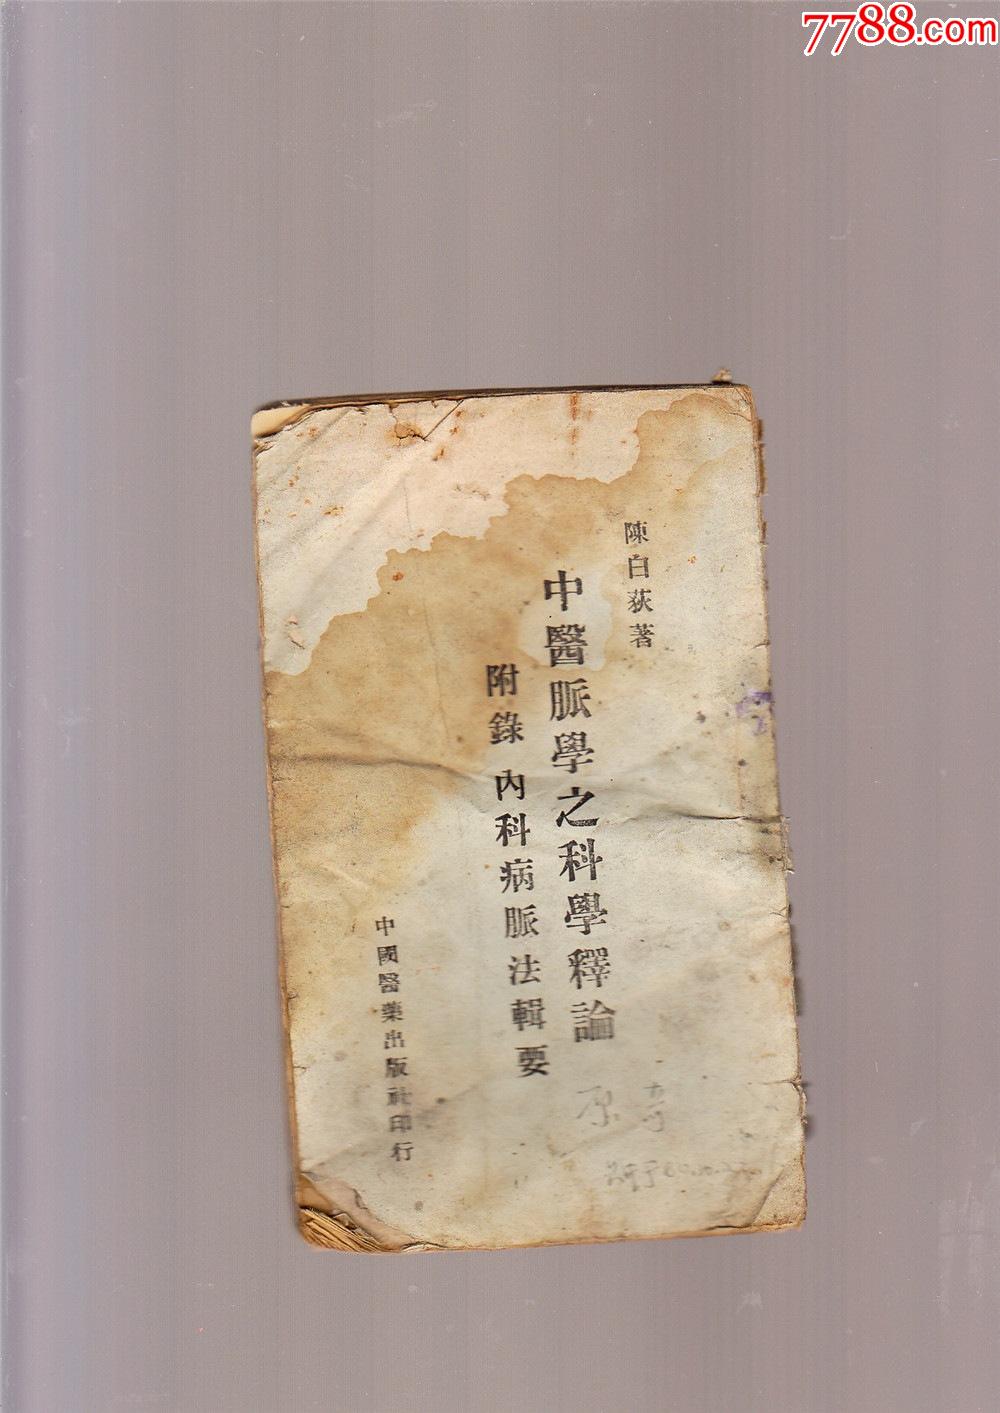 7788.com
陳白荻著
中醫脈學之科學釋論
附錄 內科病脈法輯要
中國醫藥出版社印行